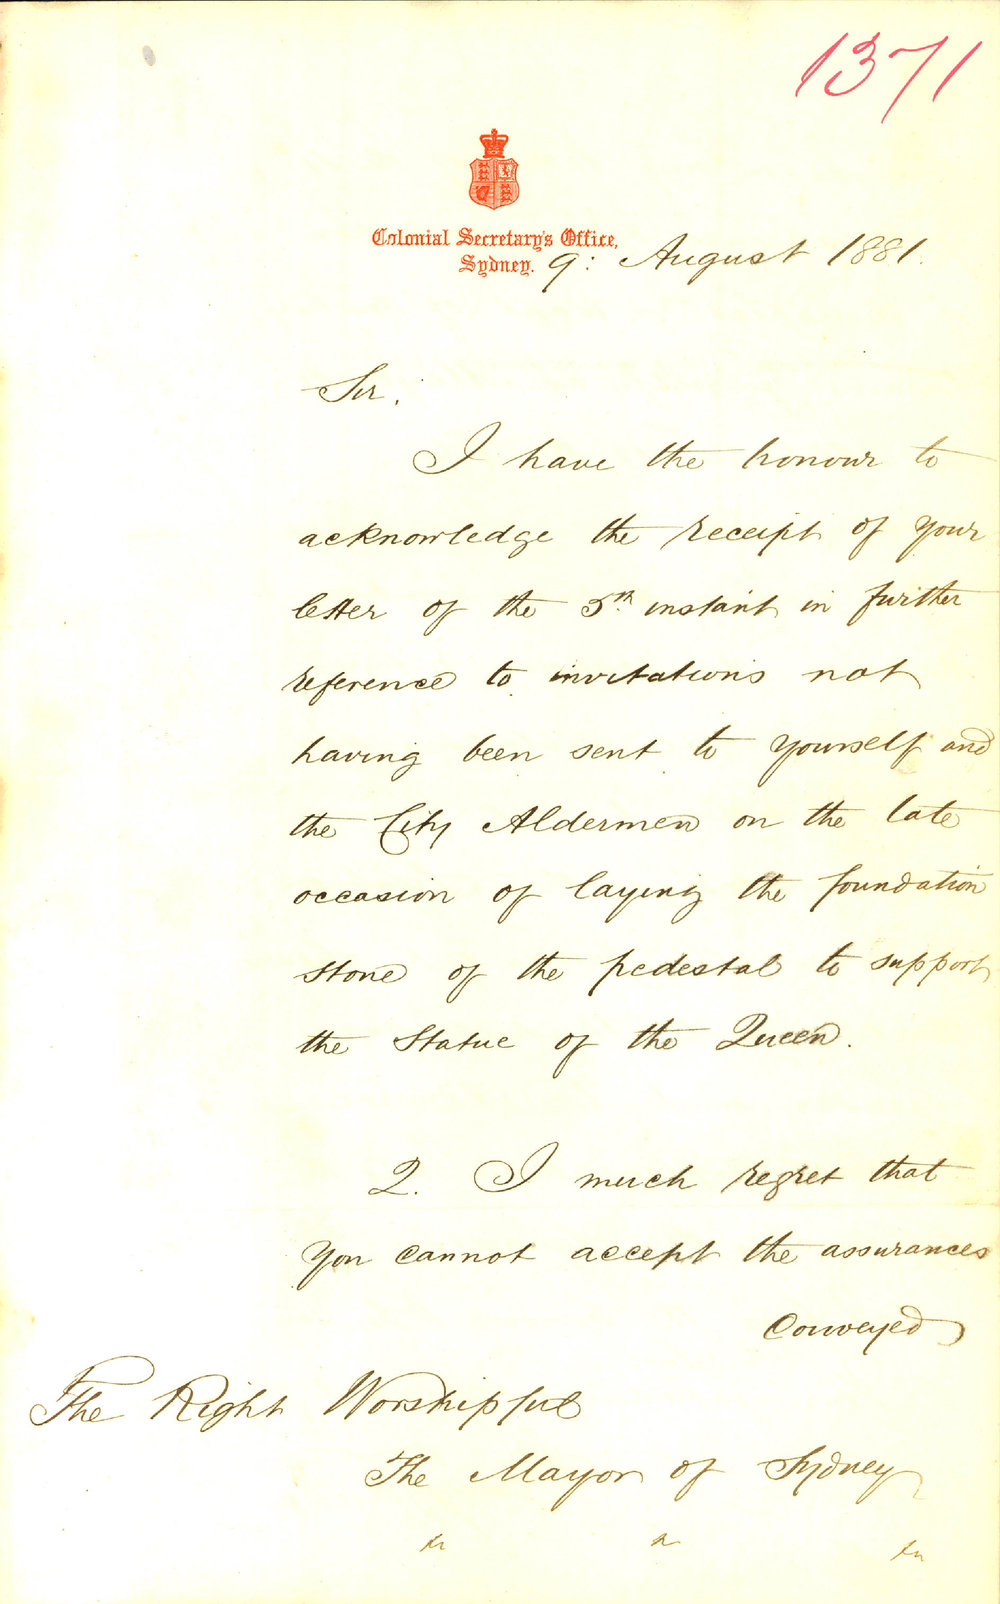 1371
Colonial Secretary's Office,
Sydney. 9: August 1881.
Sir.
I have the honour to
acknowledge the receipt of your
letter of the 5th instant in further
reference to invitations not
having been sent to yourself and
the City Aldermen on the late
occasion of laying the foundation
stone of the pedestal to support
the Statue of the Queen.
2. I much regret that
you cannot accept the assurances
conveyed
The Right Worshipful
The Mayor of Sydney